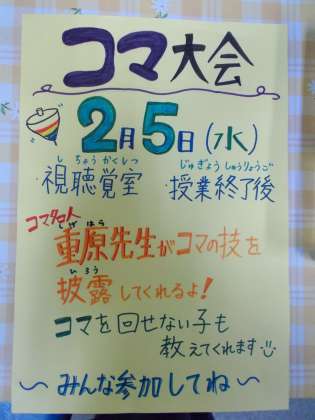 コマ大会
2月5日(水)
しちょうかくしつ じゅぎょうしゅうりょうご
・視聴覚室 ・授業終了後
コマ名人
しげはら
重原先生がコマの技を
ひろう
披露してくれるよ!
コマを回せない子も
教えてくれます
〜みんな参加してね〜